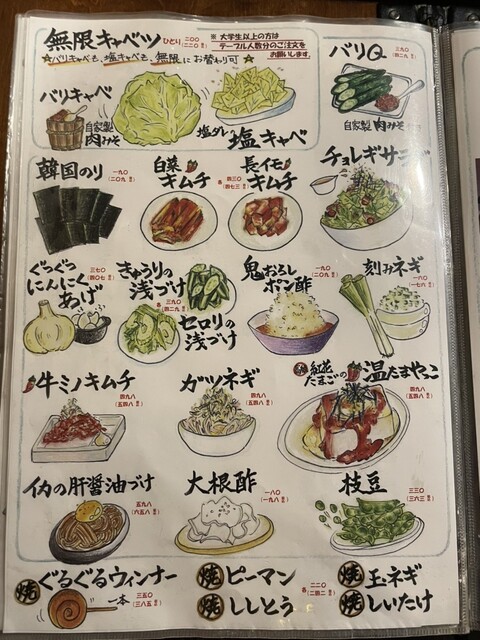 無限キャベツ ひとり 二〇〇
(二二〇 税込)
※ 大学生以上の方は
テーブル人数分のご注文を
お願いします。
☆バリキャベも、塩キャベも、無限にお替わり可☆
バリキャベ
自家製
肉みそ
塩ダレ
塩キャベ
バリQ
三九〇
(四二九 税込)
自家製 肉みそ
韓国のり
一九〇
(二〇九 税込)
白菜
キムチ
長イモ
キムチ
各 四三〇
(四七三 税込)
チョレギサラダ
ぐつぐつ
にんにく
あげ
三七〇
(四〇七 税込)
きゅうりの
浅づけ
各 三九〇
(四二九 税込)
セロリの
浅づけ
鬼おろし
ポン酢
一九〇
(二〇九 税込)
刻みネギ
一六〇
(一七六 税込)
牛ミノキムチ
四九八
(五四八 税込)
ガツネギ
四九八
(五四八 税込)
紅花
たまごの
温たまやっこ
四九八
(五四八 税込)
イカの肝醤油づけ
五九八
(六五八 税込)
大根酢
一八〇
(一九八 税込)
枝豆
三三〇
(三六三 税込)
焼 ぐるぐるウィンナー
一本 三五〇
(三八五 税込)
焼 ピーマン
焼 ししとう
各 二二〇
(二四二 税込)
焼 玉ネギ
焼 しいたけ